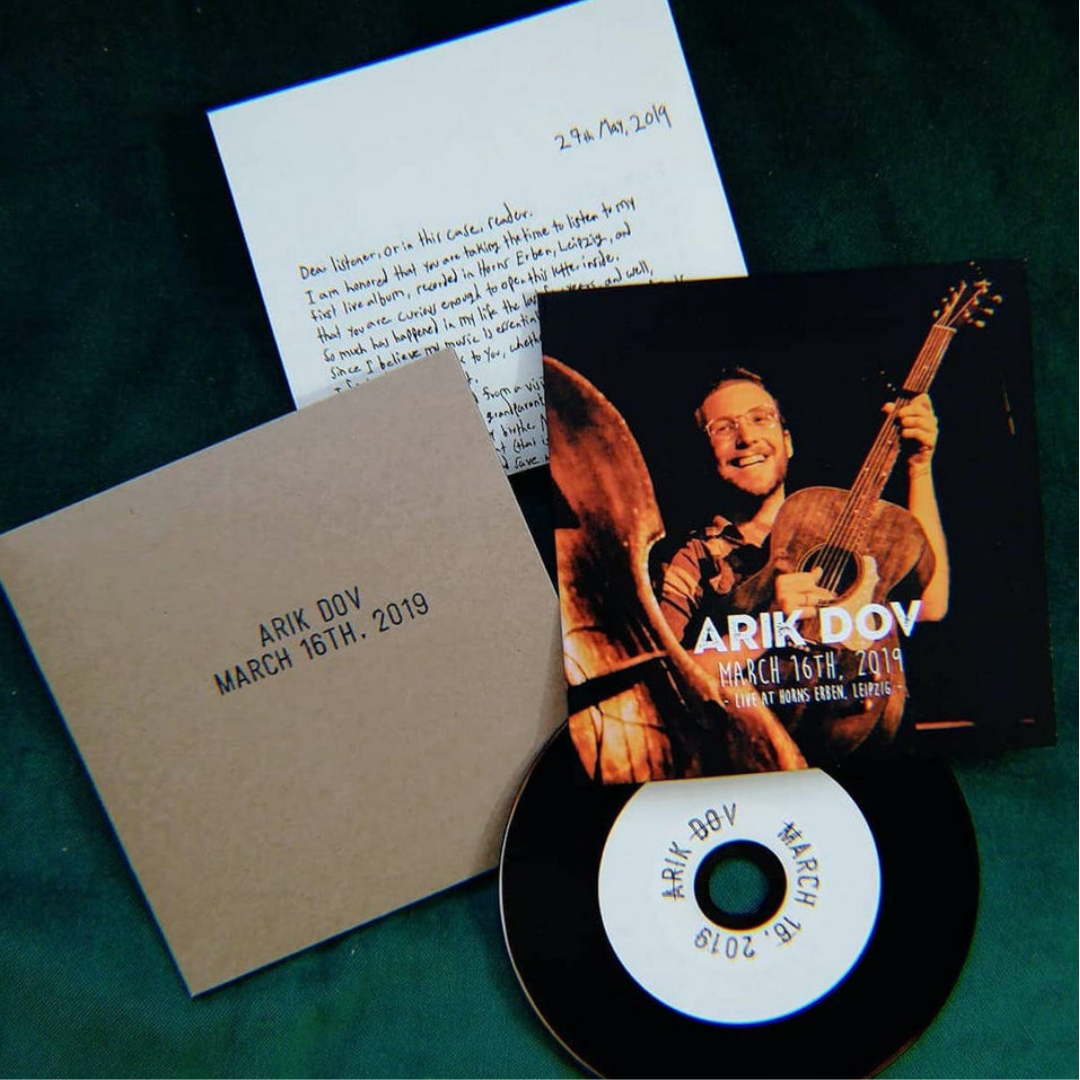 29th May, 2019
Dear listener, or in this case, reader.
I am honored that you are taking the time to listen to my
first live album, recorded in Horns Erben, Leipzig, and
that you are curious enough to open this letter inside.
So much has happened in my life the last years, and well,
since I believe my music is essential
to you, wheth
from a visi
grandparent
brothe
t (that is
save
ARIK DOV
MARCH 16TH, 2019
- LIVE AT HORNS ERBEN, LEIPZIG -
ARIK DOV
MARCH 16TH, 2019
ARIK DOV
MARCH 16, 2019